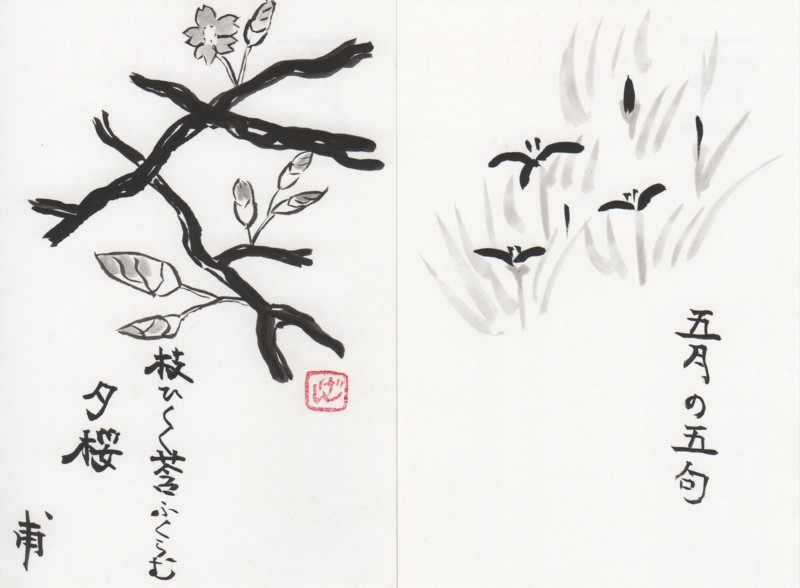 五月の五句
枝ひくく莟ふくらむ
夕桜
甫